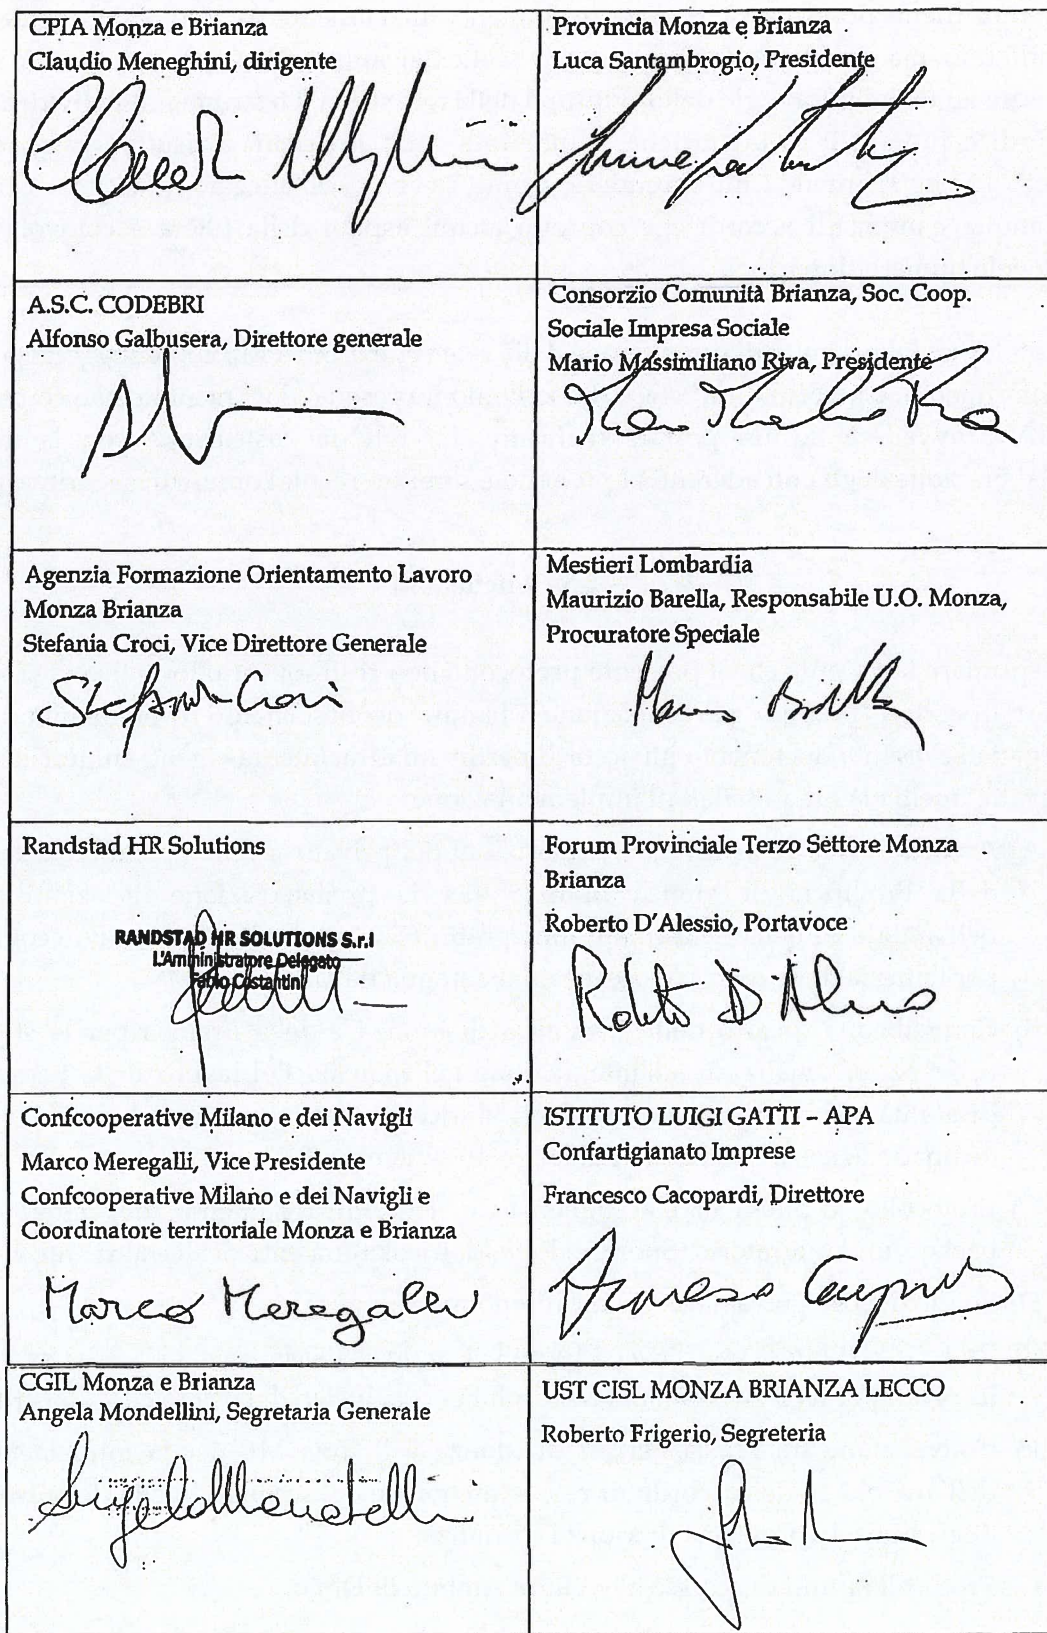 CPIA Monza e Brianza
Claudio Meneghini, dirigente
Provincia Monza e Brianza
Luca Santambrogio, Presidente
A.S.C. CODEBRI
Alfonso Galbusera, Direttore generale
Consorzio Comunità Brianza, Soc. Coop.
Sociale Impresa Sociale
Mario Massimiliano Riva, Presidente
Agenzia Formazione Orientamento Lavoro
Monza Brianza
Stefania Croci, Vice Direttore Generale
Stefania Croci
Mestieri Lombardia
Maurizio Barella, Responsabile U.O. Monza,
Procuratore Speciale
Randstad HR Solutions
RANDSTAD HR SOLUTIONS S.r.l
L'Amministratore Delegato
Fabio Costantini
Forum Provinciale Terzo Settore Monza
Brianza
Roberto D'Alessio, Portavoce
Roberto D'Alessio
Confcooperative Milano e dei Navigli
Marco Meregalli, Vice Presidente
Confcooperative Milano e dei Navigli e
Coordinatore territoriale Monza e Brianza
Marco Meregalli
ISTITUTO LUIGI GATTI – APA
Confartigianato Imprese
Francesco Cacopardi, Direttore
CGIL Monza e Brianza
Angela Mondellini, Segretaria Generale
Angela Mondellini
UST CISL MONZA BRIANZA LECCO
Roberto Frigerio, Segreteria